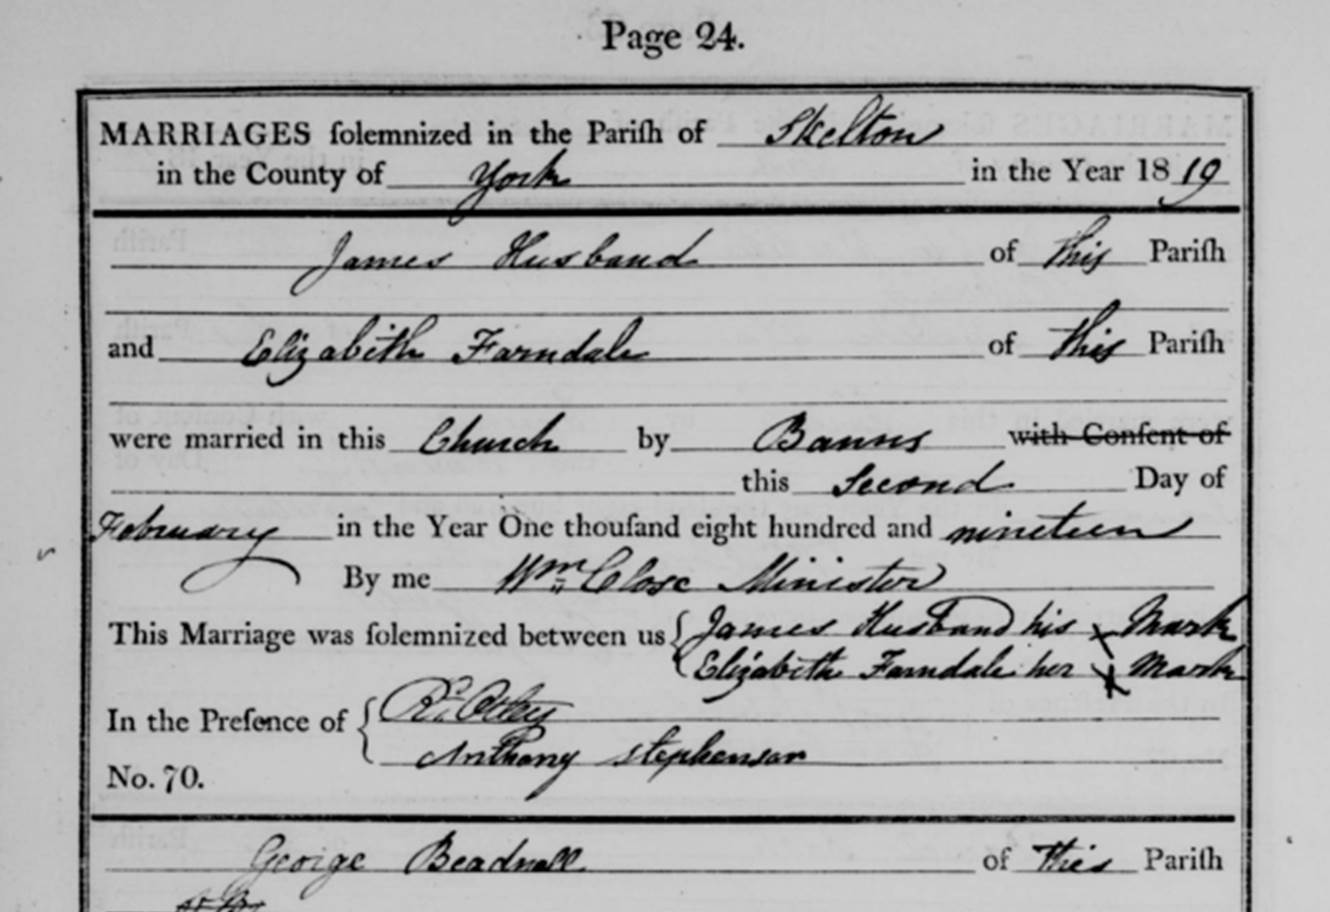 Page 24.
MARRIAGES ſolemnized in the Pariſh of Skelton
in the County of York in the Year 1819
James Husband of this Pariſh
and Elizabeth Farndale of this Pariſh
were married in this Church by Banns with Conſent of
this Second Day of
February in the Year One thouſand eight hundred and nineteen
By me Wm. Close Minister
This Marriage was ſolemnized between us { James Husband his x Mark
Elizabeth Farndale her x Mark
In the Preſence of { Rt.
Anthony Stephenson
No. 70.
George Beadnall of this Pariſh